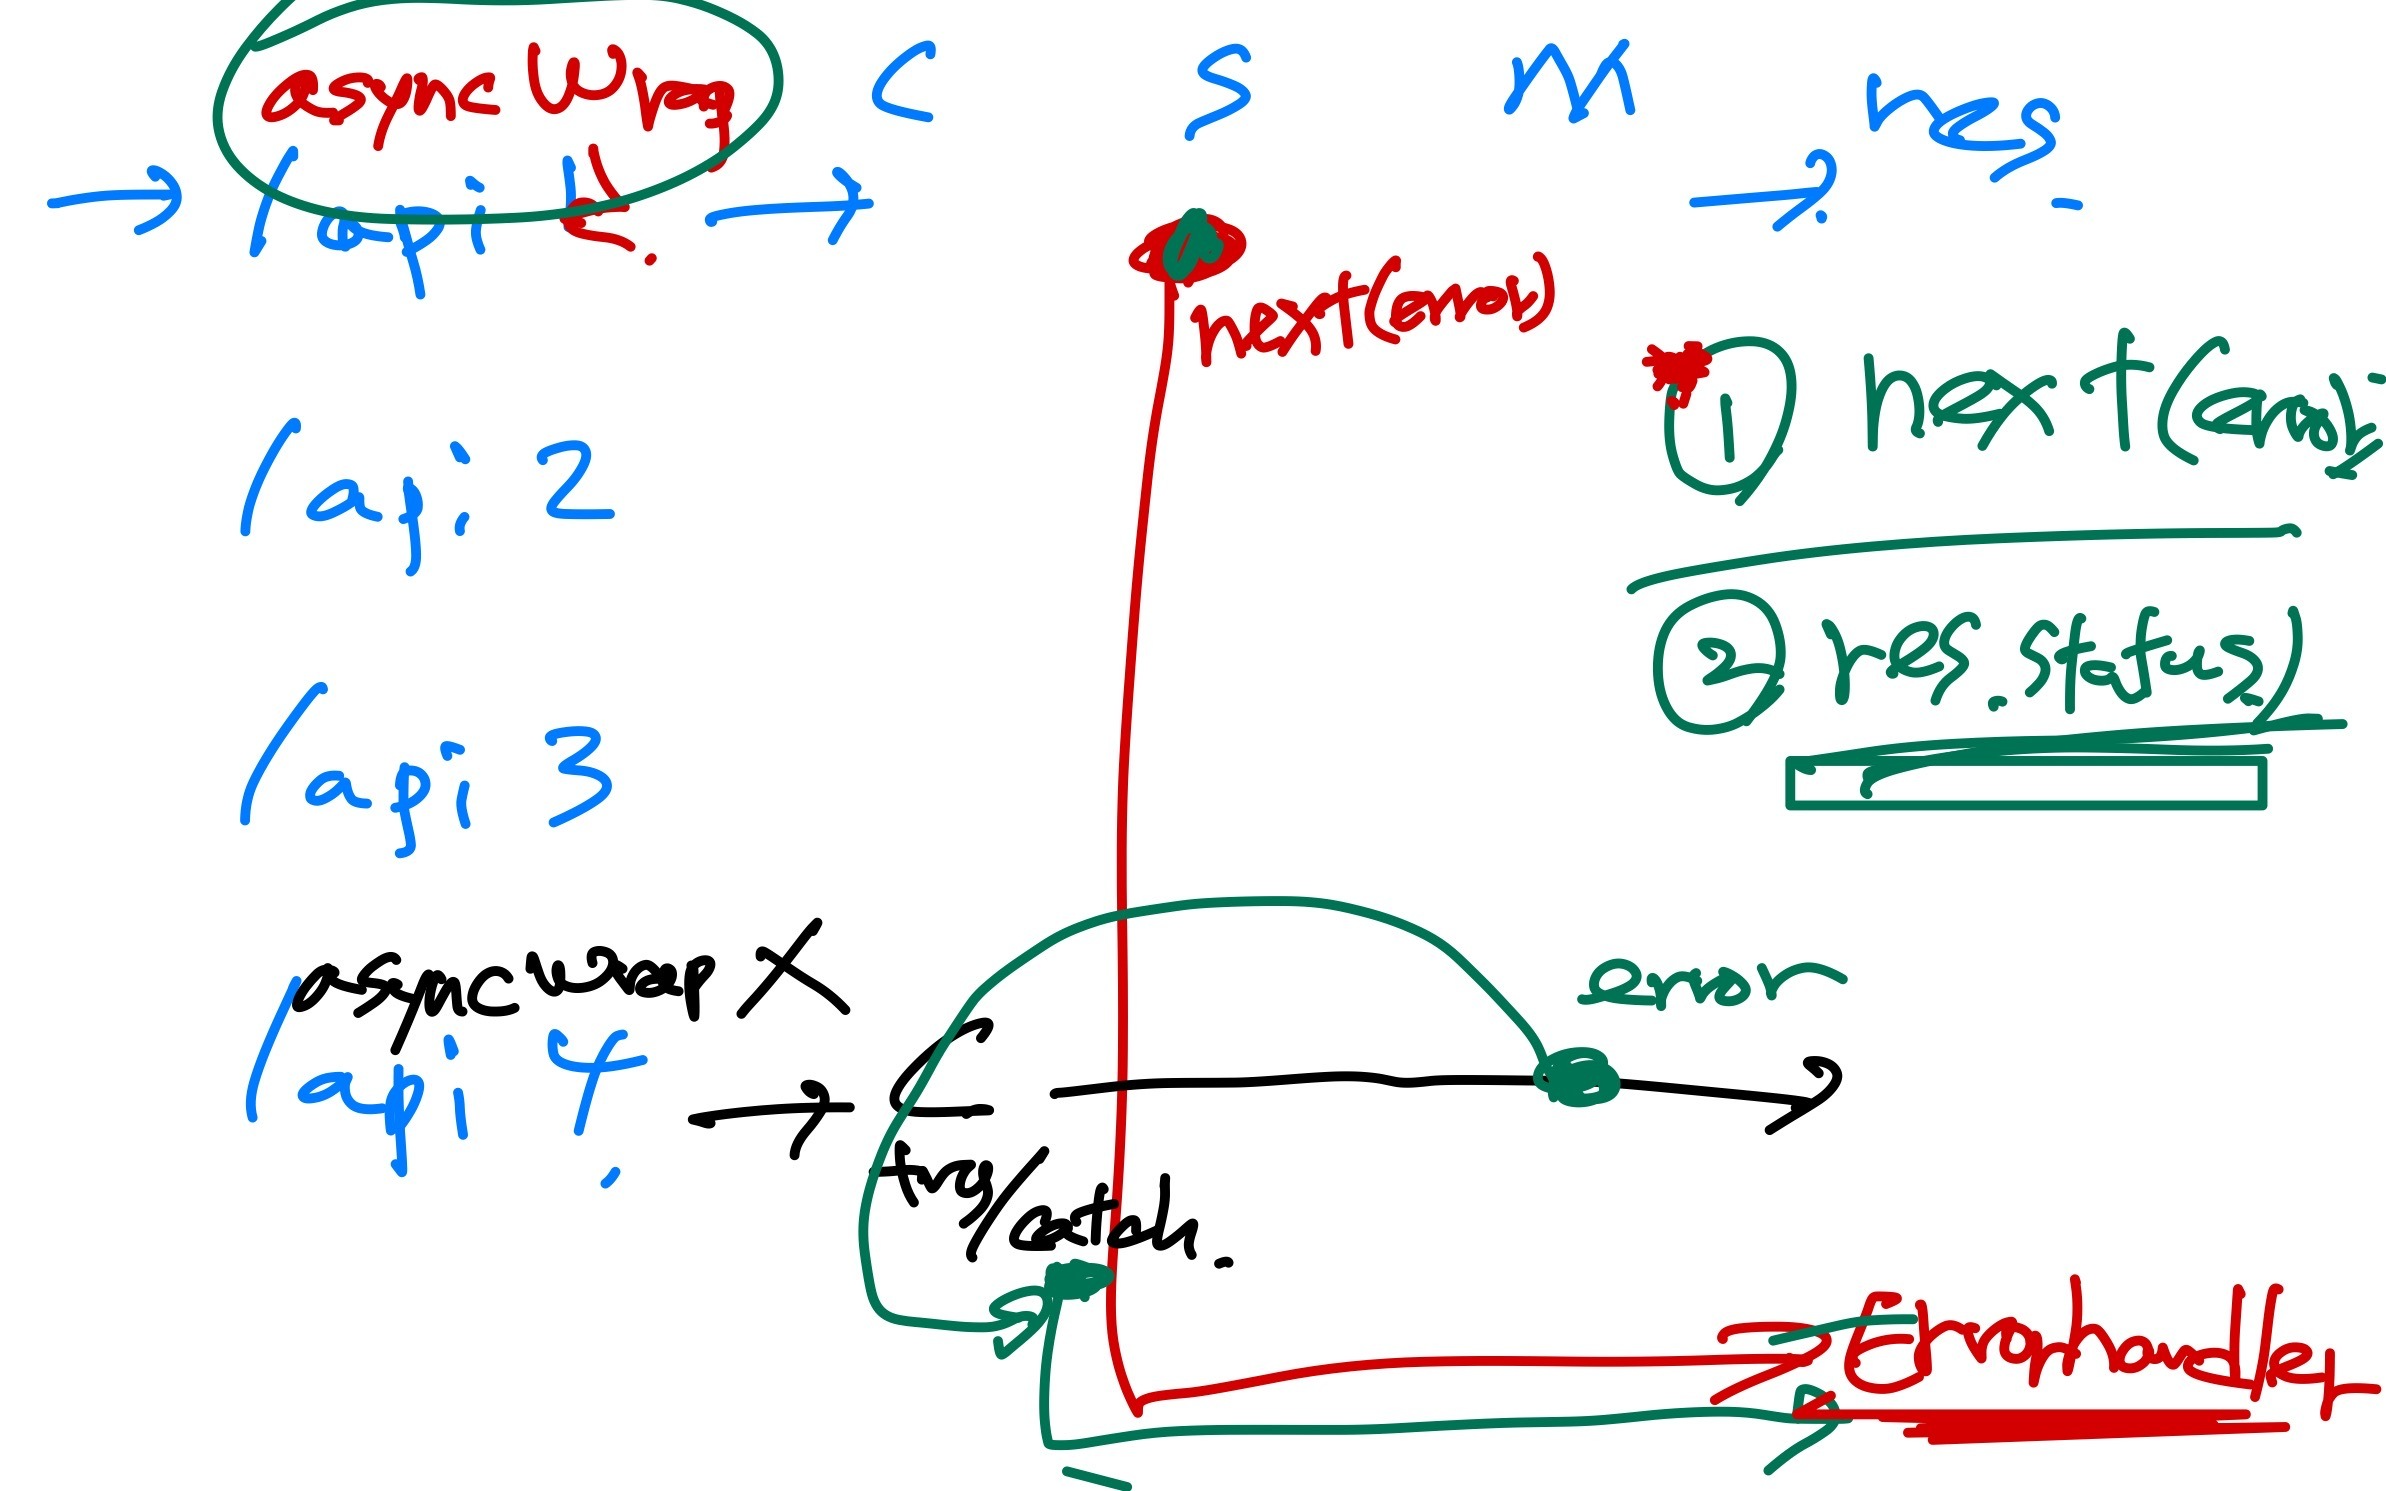 async wrap C S M res.
/api 1
next(error)
① next(error)
/api 2
② res.status)
/api 3
async wrap X
error
/api 4 C
try/catch
Errorhandler